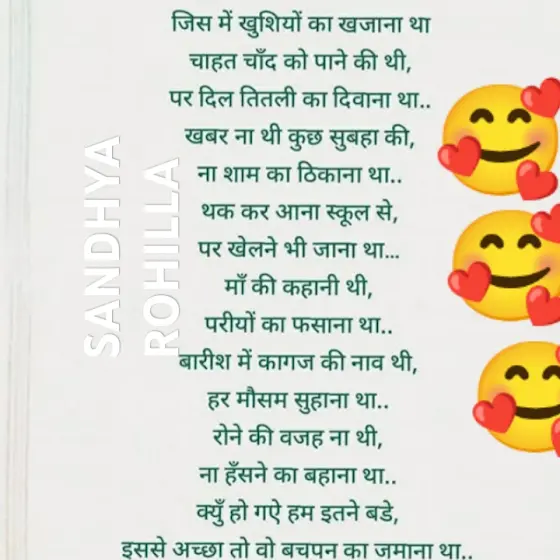 जिस में खुशियों का खजाना था
चाहत चाँद को पाने की थी,
पर दिल तितली का दिवाना था..
खबर ना थी कुछ सुबहा की,
ना शाम का ठिकाना था..
थक कर आना स्कूल से,
पर खेलने भी जाना था...
माँ की कहानी थी,
परीयों का फसाना था..
बारीश में कागज की नाव थी,
हर मौसम सुहाना था..
रोने की वजह ना थी,
ना हँसने का बहाना था..
क्युँ हो गऐ हम इतने बडे,
इससे अच्छा तो वो बचपन का जमाना था..
SANDHYA
ROHILLA